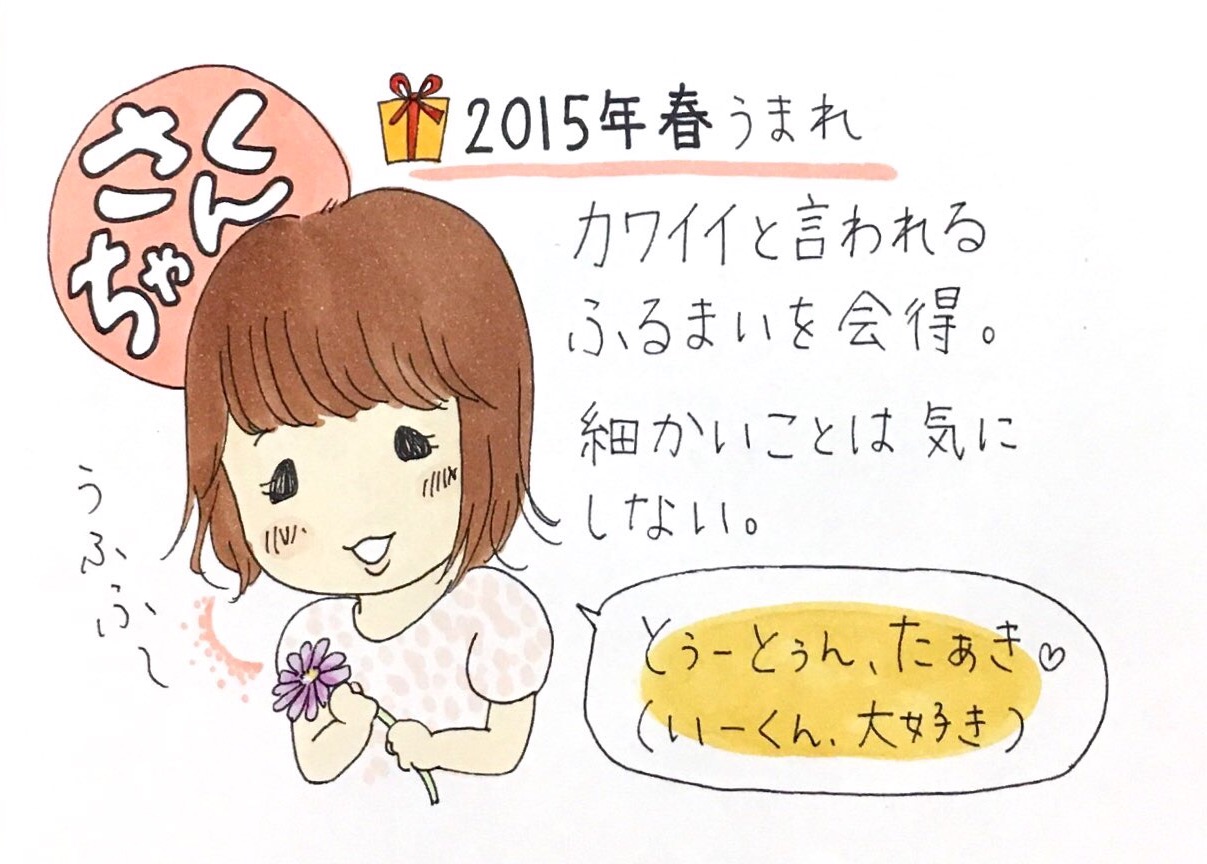 さく
ちゃん
2015年春うまれ
カワイイと言われる
ふるまいを会得。
細かいことは気に
しない。
うふふ〜
とぅーとぅん、たぁき♡
(いーくん、大好き)